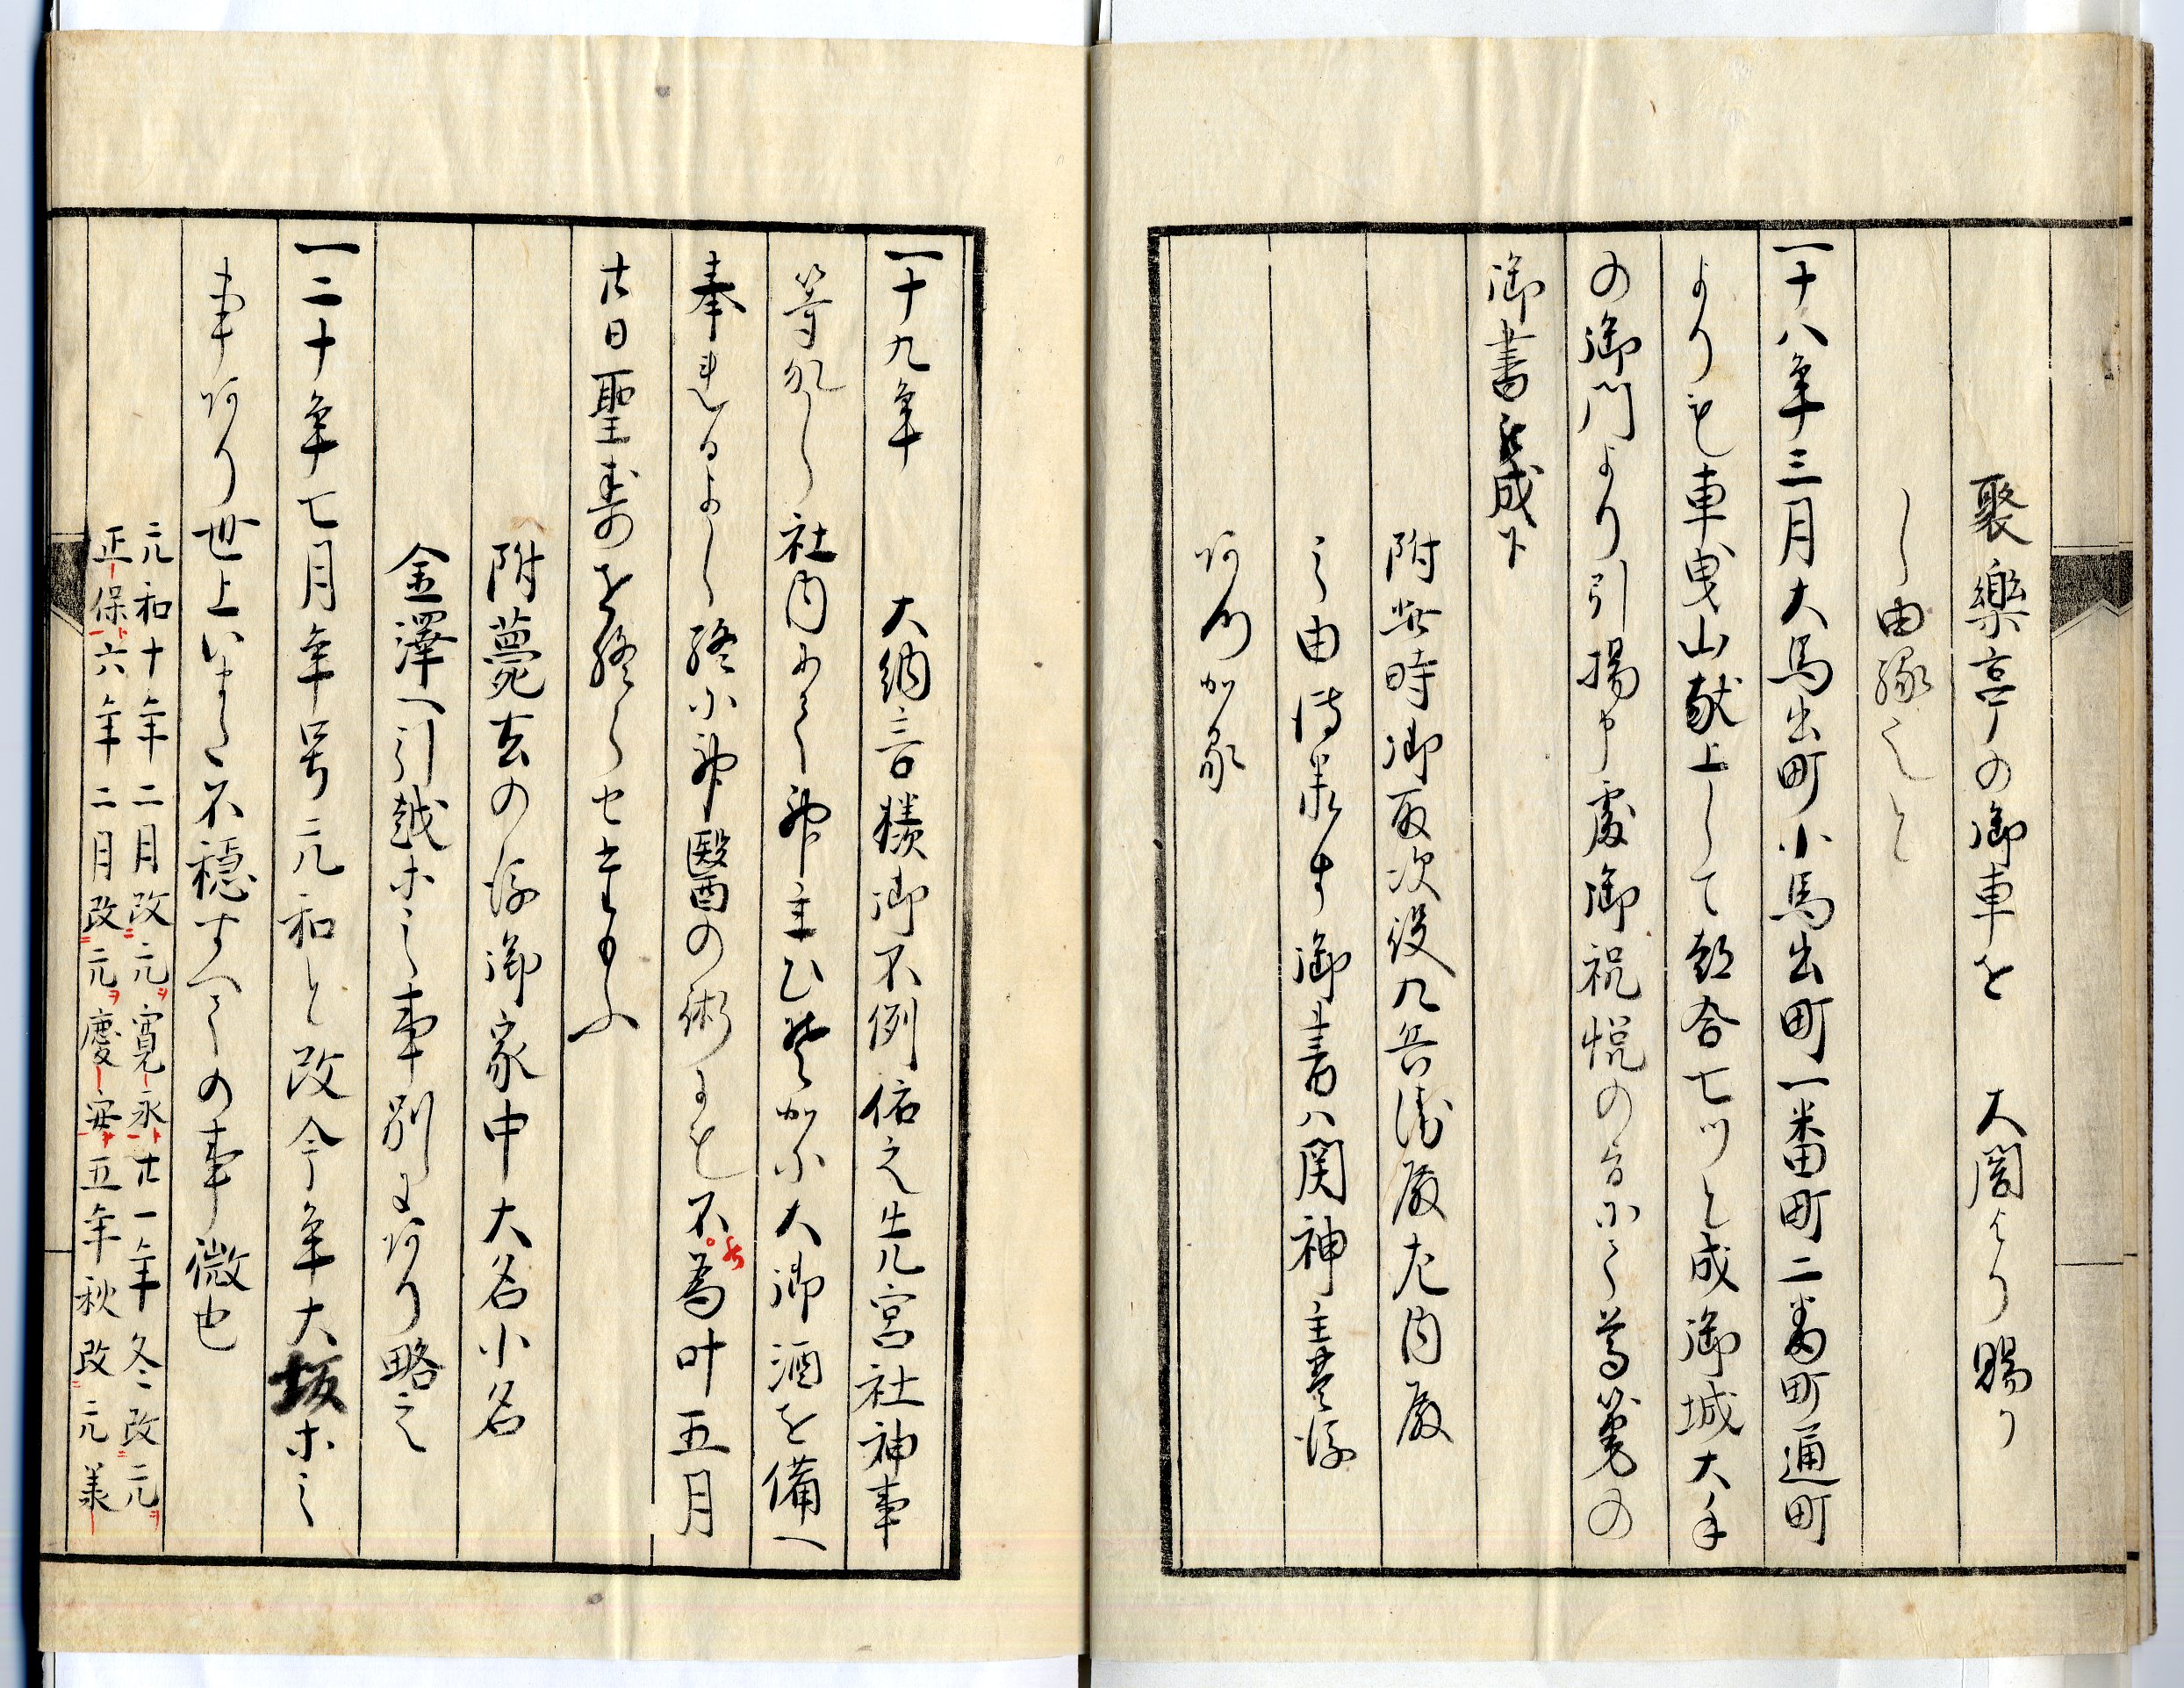 聚樂亭の御車を　大閤より賜り
し由縁也と
一十八年三月大馬出町小馬出町一番町二番町通町
よりも車曳山献上して都合七ツと成御城大手
の御門より引揚申處御祝悦の旨にて尊覧の
御書被成下
附此時御取次役九兵衛殿左内殿
之由傳来す御書ハ関神主業像
阿り
一十九年　大納言様御不例依之先宮社神事
等執し社内にて神主ひそかに大御酒を備へ
奉れるよし終に神醫の術にも不為叶五月
廿日聖寿を終らせ玉ふ
附薨去の後御家中大名小名
金澤へ引越ホ之事別に阿り略之
一二十年七月年号元和と改今年大坂ホ之
事阿り世上いまた不穏すへての事微也
元和十年二月改元寛永廿一年冬改元
正保六年二月改元慶安五年秋改元兼